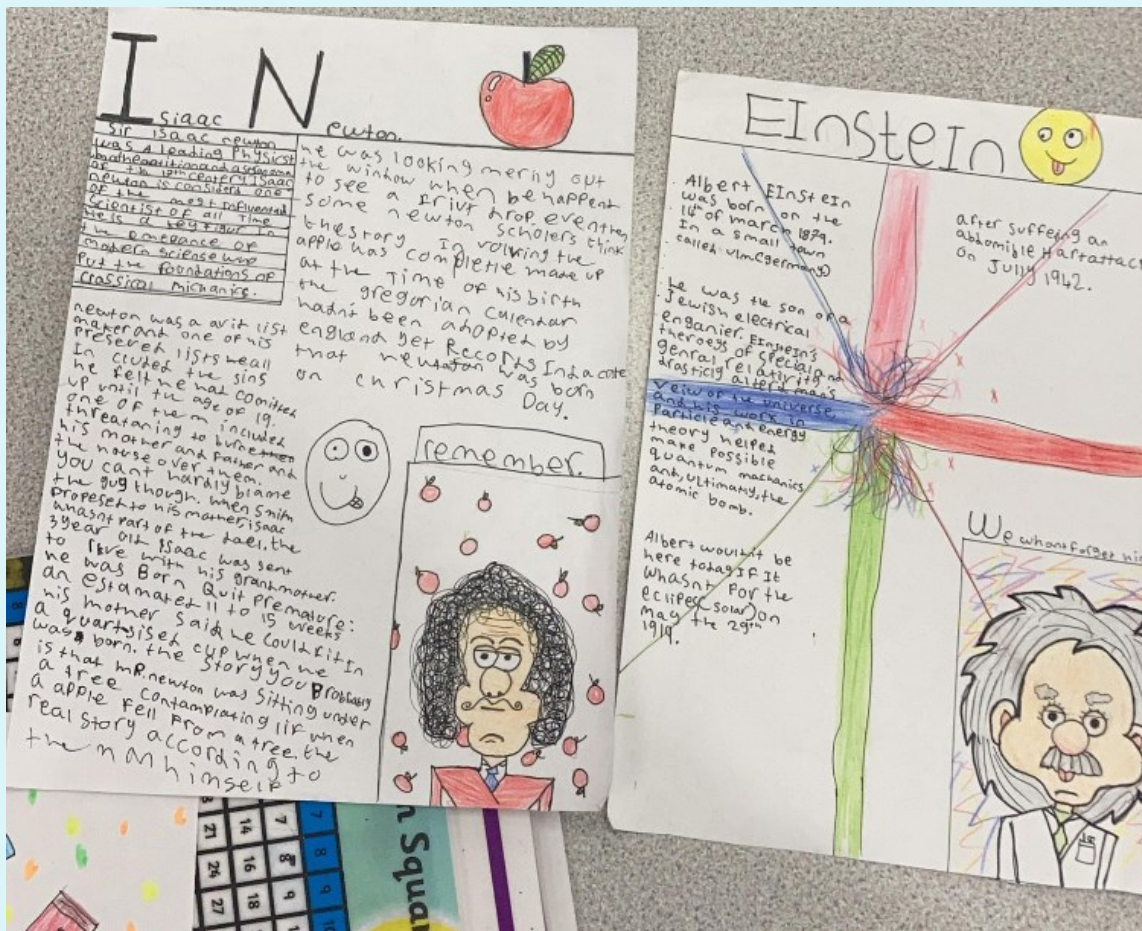 I N
Isiaac Newton.
Sir Isaac newton
was a leading Physist
of the 18th centery Isaac
newton is considerd one
of the most influented
scientist of all Time
He is a key figur in
the emerance of
modern sciense who
Put the foundations of
classical michanics.
newton was a avit list
maker and one of his
preseved lists weall
In cluted the sins
he felt he hat comitted
up until the age of 19.
one of them included
threataning to burn
his mother and Father and
the house over them.
you cant hardly blame
the guy though. when Smith
propeset to his mother, isaac
whasnt part of the dael. the
3year old Isaac was sent
to live with his grandmother.
he was Born Quit Premature:
an estamated 11 to 15 weeks
his mother said he could fit In
a quartsised cup when he
was born. the Story you Probbably
is that mr. newton was sitting under
a tree contamplating lif when
a apple fell From a tree. the
real story according to
the man himself
he was looking merily out
the window when he happent
to see a friut drop. eventhen
some newton scholers think
the story In volving the
apple was completle made up
at the Time of his birth
the gregorian calendar
hadn't been adopted by
england yet Records Indacate
that newton was born
on christmas Day.
remember.
EInsteIn
Albert EInsteIn
was born on the
14th of march 1879.
In a small town
callet ulm(germany)
he was the son of a
Jewish electrical
enganier. EInsteIn's
theroeys of special and
genral relativity's
drasticly alterd man's
veiw of the universe,
and his work in
Particle and energy
theory helped
make possible
quantum machanics
and, ultimatly, the
atomic bomb.
Albert wouldn't be
here today If It
whasnt For the
eclipes(solar)on
may the 29th
1919.
after suffering an
abdomible Hartattack
on Jully 1942.
We whant forget his
n Squar
7 8 9
7 8 9
14 16 18
21 24 27